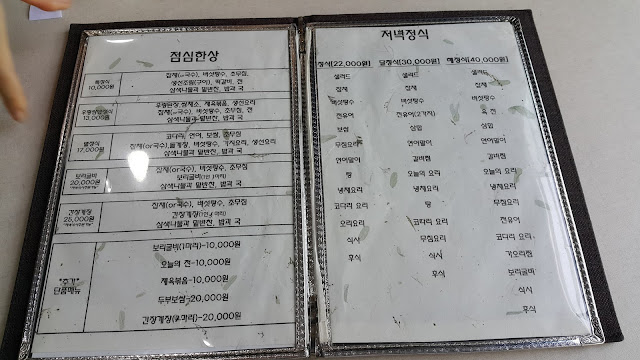 점심한상
10,000원
잡채(or국수), 버섯탕수, 초무침
생선조림(구이), 떡갈비, 전
삼색나물과 밑반찬, 밥과 국
13,000원
우렁된장, 쌈채소, 제육볶음, 생선요리
잡채(or국수), 버섯탕수, 초무침
삼색나물과 밑반찬, 밥과 국
17,000원
코다리, 연어, 보쌈, 초무침
잡채(or국수), 버섯탕수, 가지요리, 생선요리
삼색나물과 밑반찬, 밥과 국
보리굴비
20,000원
잡채(or국수), 버섯탕수, 초무침
보리굴비(1인 1마리)
삼색나물과 밑반찬, 밥과 국
간장게장
25,000원
잡채(or국수), 버섯탕수, 초무침
간장게장(1인 1마리)
삼색나물과 밑반찬, 밥과 국
"추가"
단품메뉴
보리굴비(1마리)-10,000원
오늘의 전-10,000원
제육볶음-10,000원
두부보쌈-20,000원
간장게장(1마리)-20,000원
저녁정식
정식(22,000원)
샐러드
죽
버섯탕수
전유어
보쌈
무침요리
연어말이
탕
냉채요리
코다리 요리
오리요리
식사
후식
달정식(30,000원)
샐러드
죽
버섯탕수
전유어(2가지)
삼합
연어말이
갈비찜
오늘의 요리
냉채요리
탕
코다리 요리
무침요리
식사
후식
해정식(40,000원)
샐러드
죽
버섯탕수
육전
삼합
연어말이
갈비찜
오늘의 요리
냉채요리
무침요리
전유어
코다리 요리
가오리찜
보리굴비
식사
후식